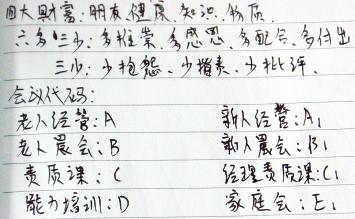 四大财富:朋友、健康、知识、物质
六多三少:多推崇、多感恩、多配合、多付出
三少:少抱怨、少指责、少批评.
会议代码:
老人经营:A 新人经营:A1
老人晨会:B 新人晨会:B1
素质课:C 经理素质课:C1
能力培训:D 家庭会:E1